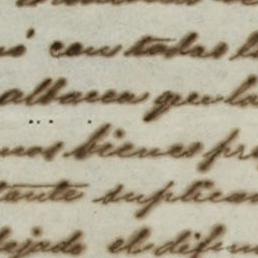 ó cantadas
Albacea que
nos bienes pro
tante suplica
dejado el difun